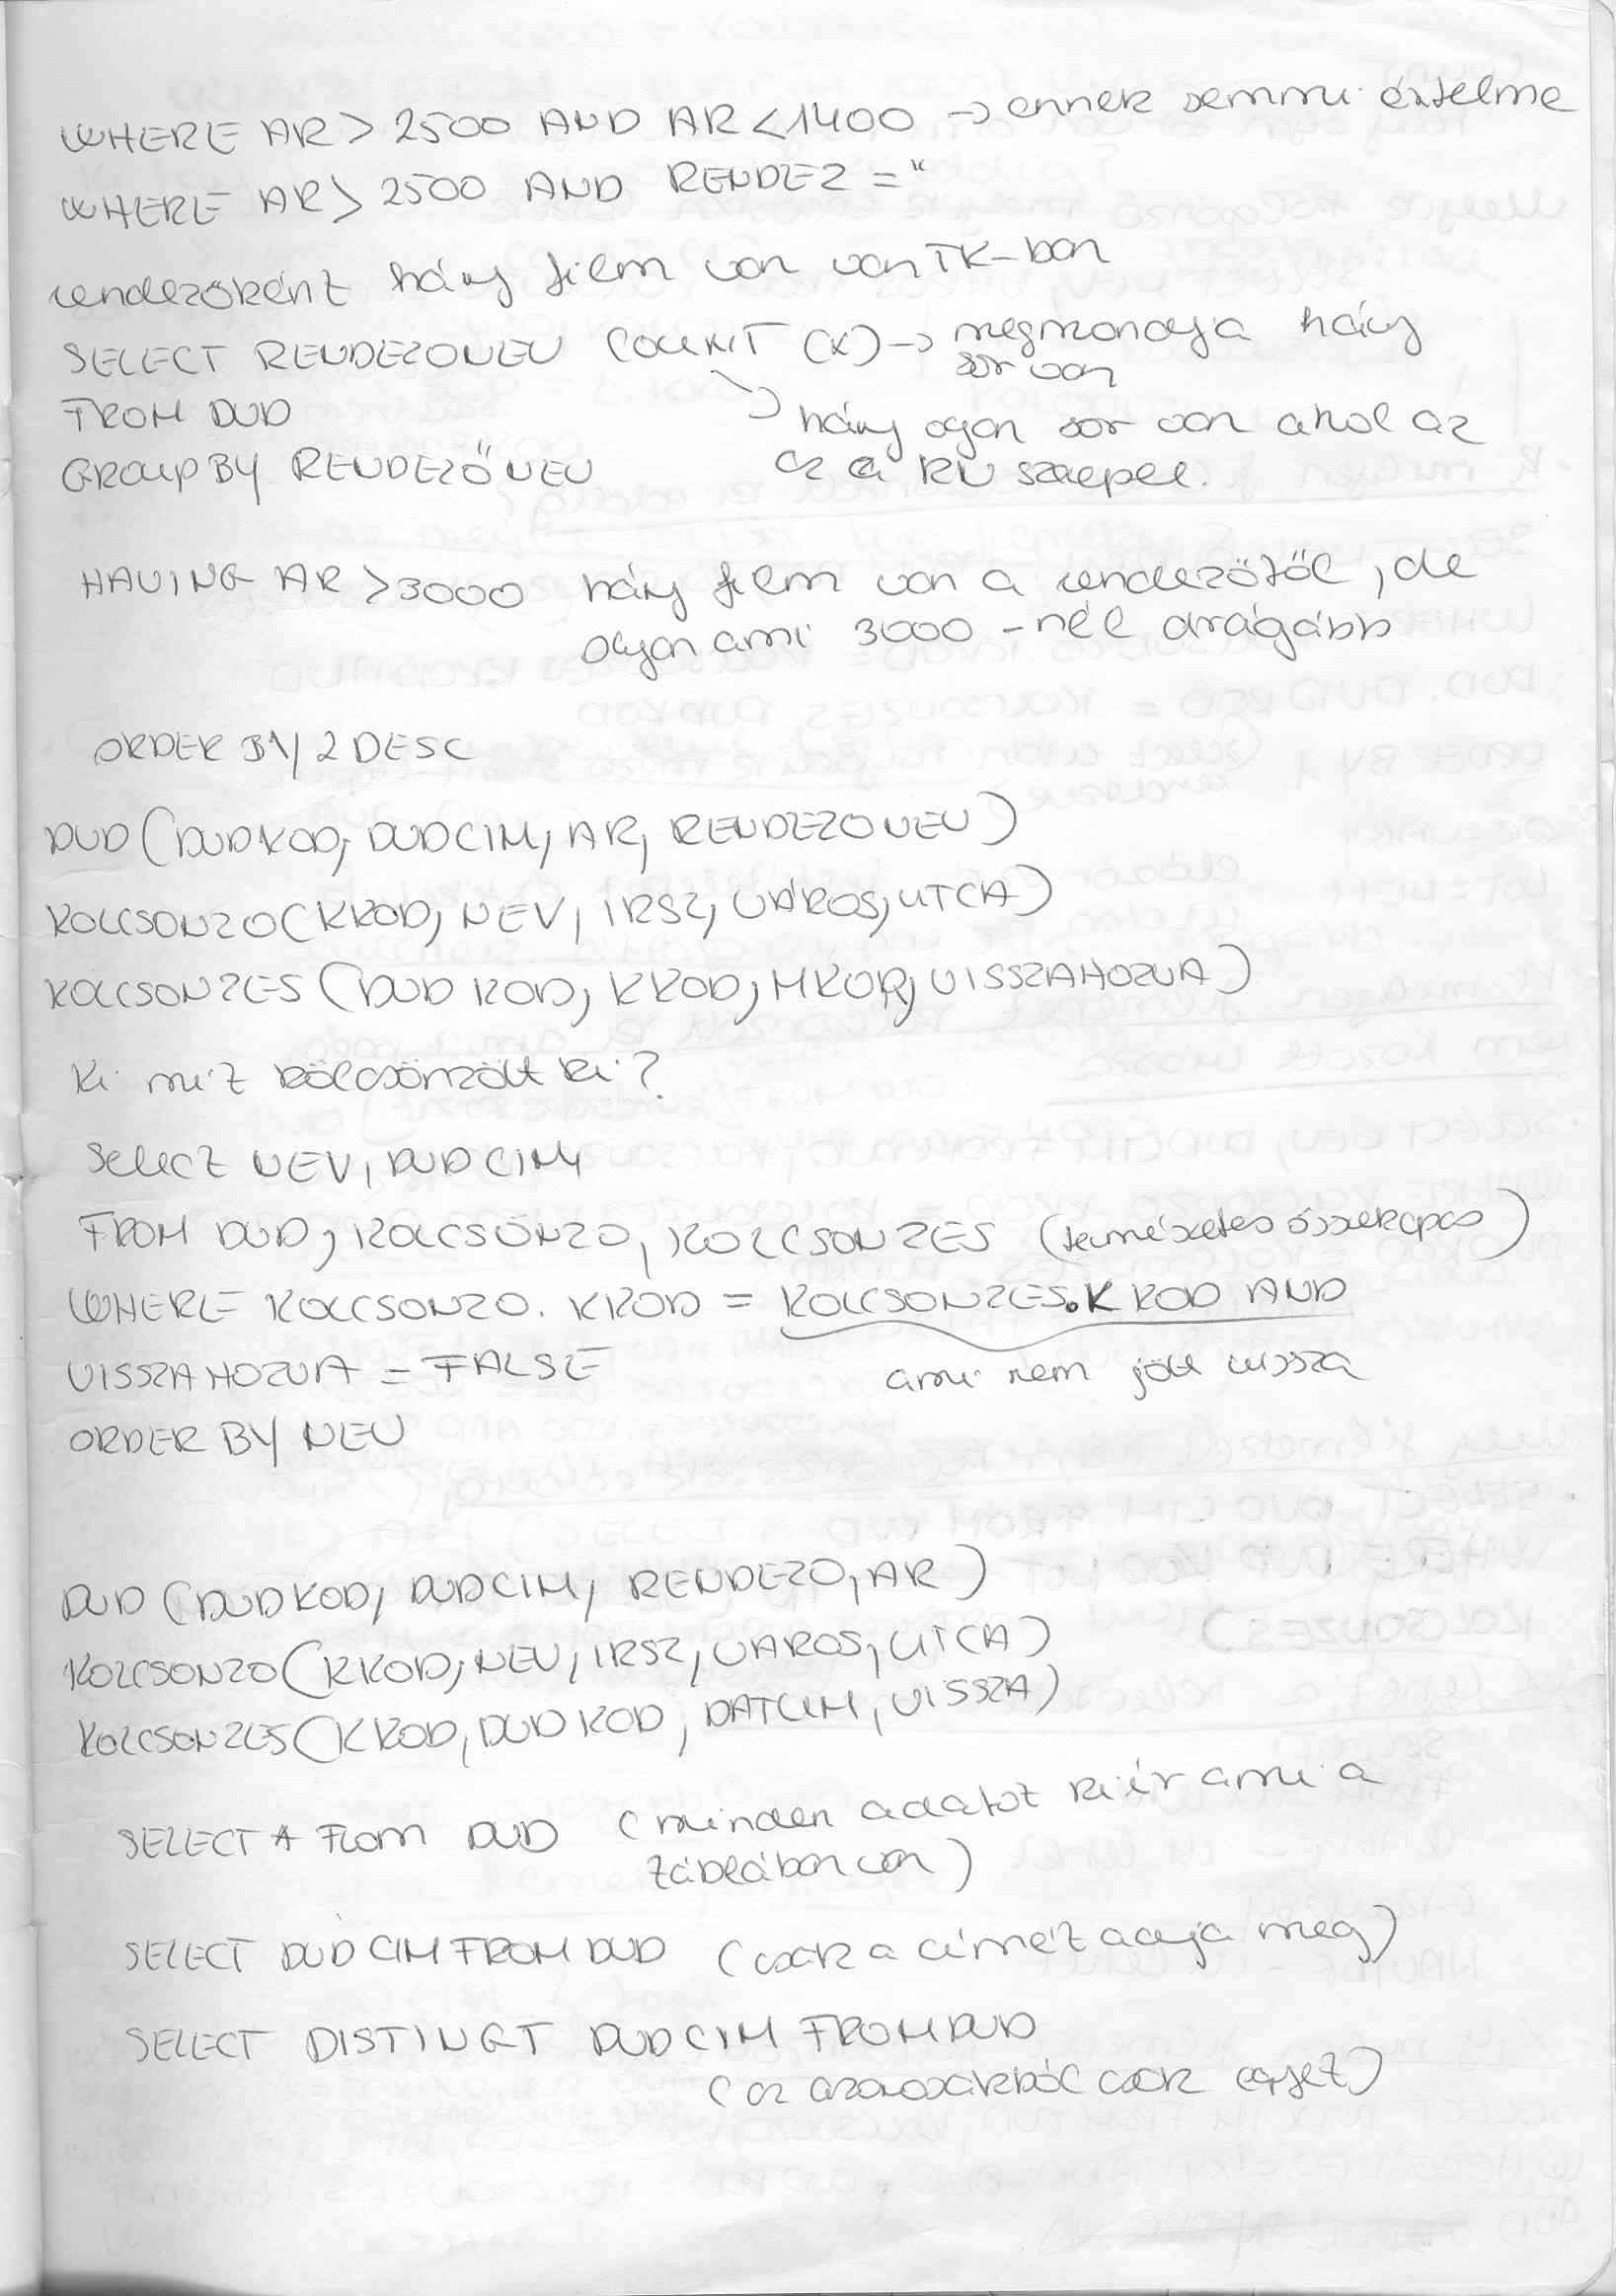 WHERE AR > 2500 AND AR < 1400 → ennek semmi értelme
WHERE AR > 2500 AND RENDEZ = "
rendezőként hány film van van TK-ban
SELECT RENDEZONEV COUNT (X) → megmondja hány
sor van
FROM DVD
↘ hány ogan sor van ahol az
GROUP BY RENDEZŐNEV
az a RN szerepel.
HAVING AR > 3000 hány film van a rendezőtől, de
olyan ami 3000 -nél drágább
ORDER BY 2 DESC
DVD (DVDKOD, DVDCIM, AR, RENDEZONEV)
KOLCSONZO (KKOD, NEV, IRSZ, VÁROS, UTCA)
KOLCSONZES (DVD KOD, KKOD, MKOR, VISSZAHOZVA)
Ki mit kölcsönzött ki?
Select NEV, DVD CIM
FROM DVD, KOLCSÖNZO, KOLCSONZES (természetes összekapcs)
WHERE KOLCSONZO. KKOD = KOLCSONZES.KKOD AND
VISSZAHOZVA = FALSE ami nem jött vissza
ORDER BY NEV
DVD (DVDKOD, DVDCIM, RENDEZO, AR)
KOLCSONZO (KKOD, NEV, IRSZ, VAROS, UTCA)
KOLCSONZES (KKOD, DVD KOD, DATUM, VISSZA)
SELECT * From DVD (minden adatot kiír ami a
táblában van)
SELECT DVD CIM FROM DVD (csak a címét adja meg)
SELECT DISTINGT DVDCIM FROM DVD
(az azonosakból csak egyet)